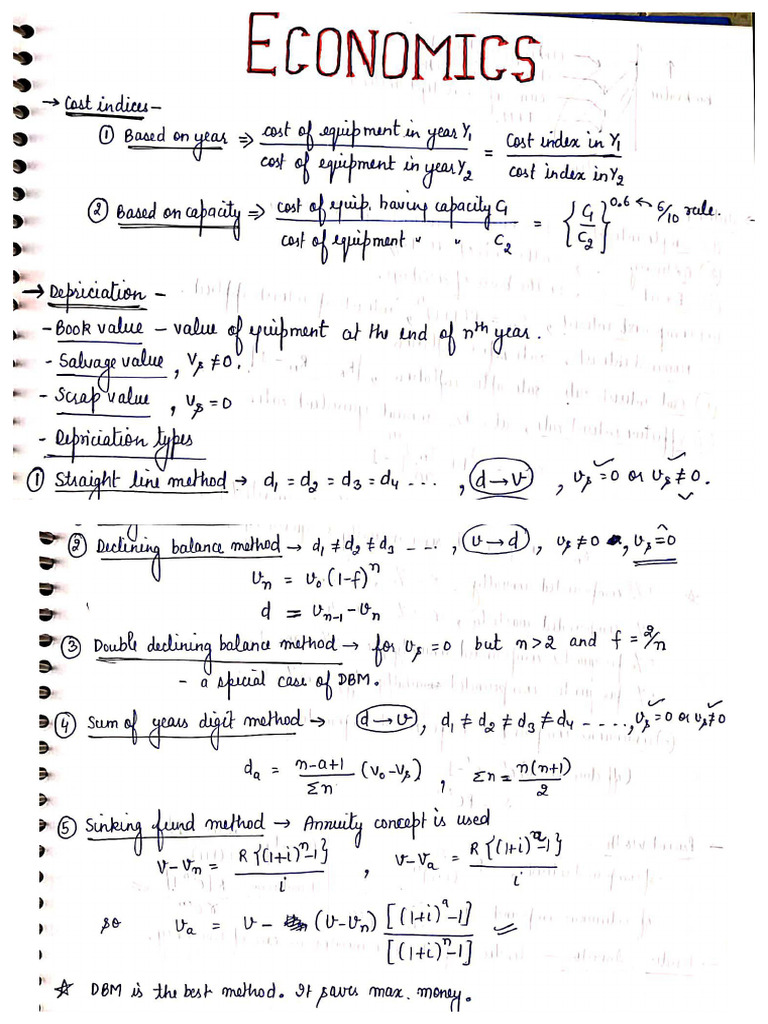 ECONOMICS
→ Cost indices –
① Based on year ⇒ cost of equipment in year Y₁ / cost of equipment in year Y₂ = Cost index in Y₁ / cost index in Y₂
② Based on capacity ⇒ cost of equip. having capacity C₁ / cost of equipment " " C₂ = {C₁/C₂}^0.6 ← 6/10 rule.
→ Depriciation –
- Book value – value of equipment at the end of nth year.
- Salvage value, Vₛ ≠ 0.
- Scrap value, Vₛ = 0
- Depriciation types
① Straight line method → d₁ = d₂ = d₃ = d₄ ..., (d→v), vₛ = 0 or vₛ ≠ 0.
② Declining balance method → d₁ ≠ d₂ ≠ d₃ ..., (v→d), vₛ ≠ 0, vₛ = 0
vₙ = v₀ (1-f)ⁿ
d = vₙ₋₁ - vₙ
③ Double declining balance method → for vₛ = 0 but n > 2 and f = 2/n
- a special case of DBM.
④ Sum of years digit method → (d→v), d₁ ≠ d₂ ≠ d₃ ≠ d₄ ....., vₛ = 0 or vₛ ≠ 0
dₐ = (n-a+1)/Σn (v₀-vₛ), Σn = n(n+1)/2
⑤ Sinking fund method → Annuity concept is used
v-vₙ = R{(1+i)ⁿ-1}/i, v-vₐ = R{(1+i)ᵃ-1}/i
so vₐ = v - (v-vₙ) [(1+i)ᵃ-1]/[(1+i)ⁿ-1]
☆ DBM is the best method. It saves max. money.